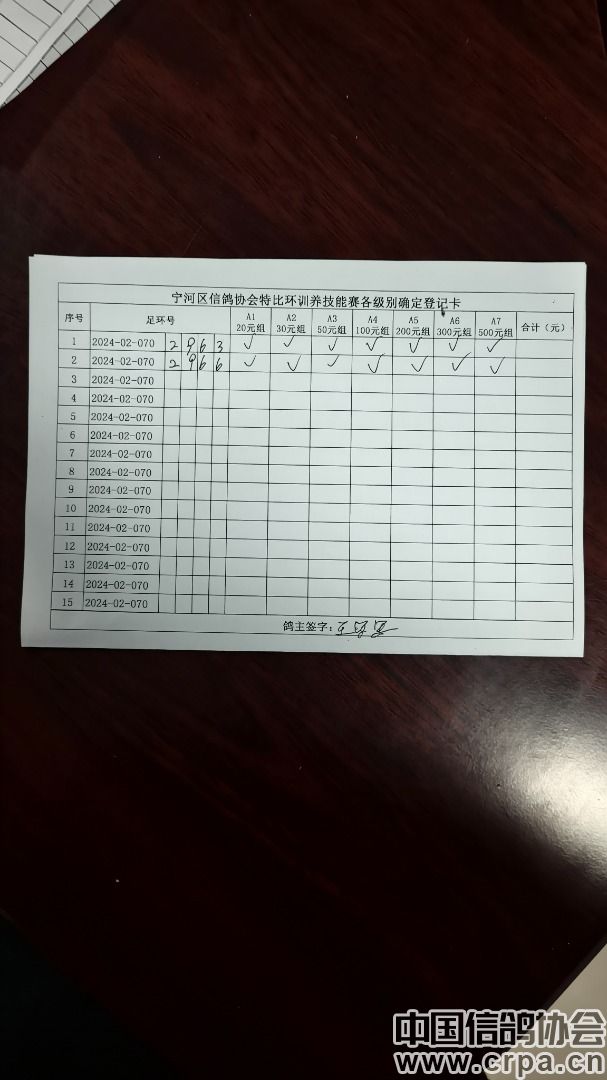 宁河区信鸽协会特比环训养技能赛各级别确定登记卡
序号 足环号 A1 20元组 A2 30元组 A3 50元组 A4 100元组 A5 200元组 A6 300元组 A7 500元组 合计（元）
1 2024-02-070 2963 ✓ ✓ ✓ ✓ ✓ ✓ ✓
2 2024-02-070 2966 ✓ ✓ ✓ ✓ ✓ ✓ ✓
3 2024-02-070
4 2024-02-070
5 2024-02-070
6 2024-02-070
7 2024-02-070
8 2024-02-070
9 2024-02-070
10 2024-02-070
11 2024-02-070
12 2024-02-070
13 2024-02-070
14 2024-02-070
15 2024-02-070
鸽主签字：
中国信鸽协会
www.crpa.cn